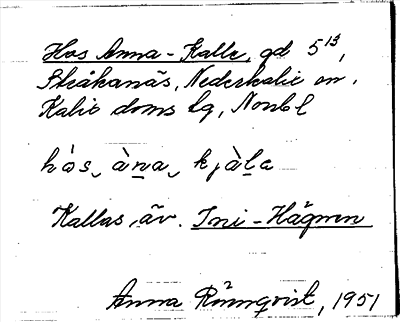 Hos Anna-Kalle, gd 5¹³,
Stråkanäs, Nederkalix sn,
Kalix doms lg, Nonbl
hòs, àna, kjàle
Kallas äv. Ini-Hägnen
Anna Rönnqvist, 1951